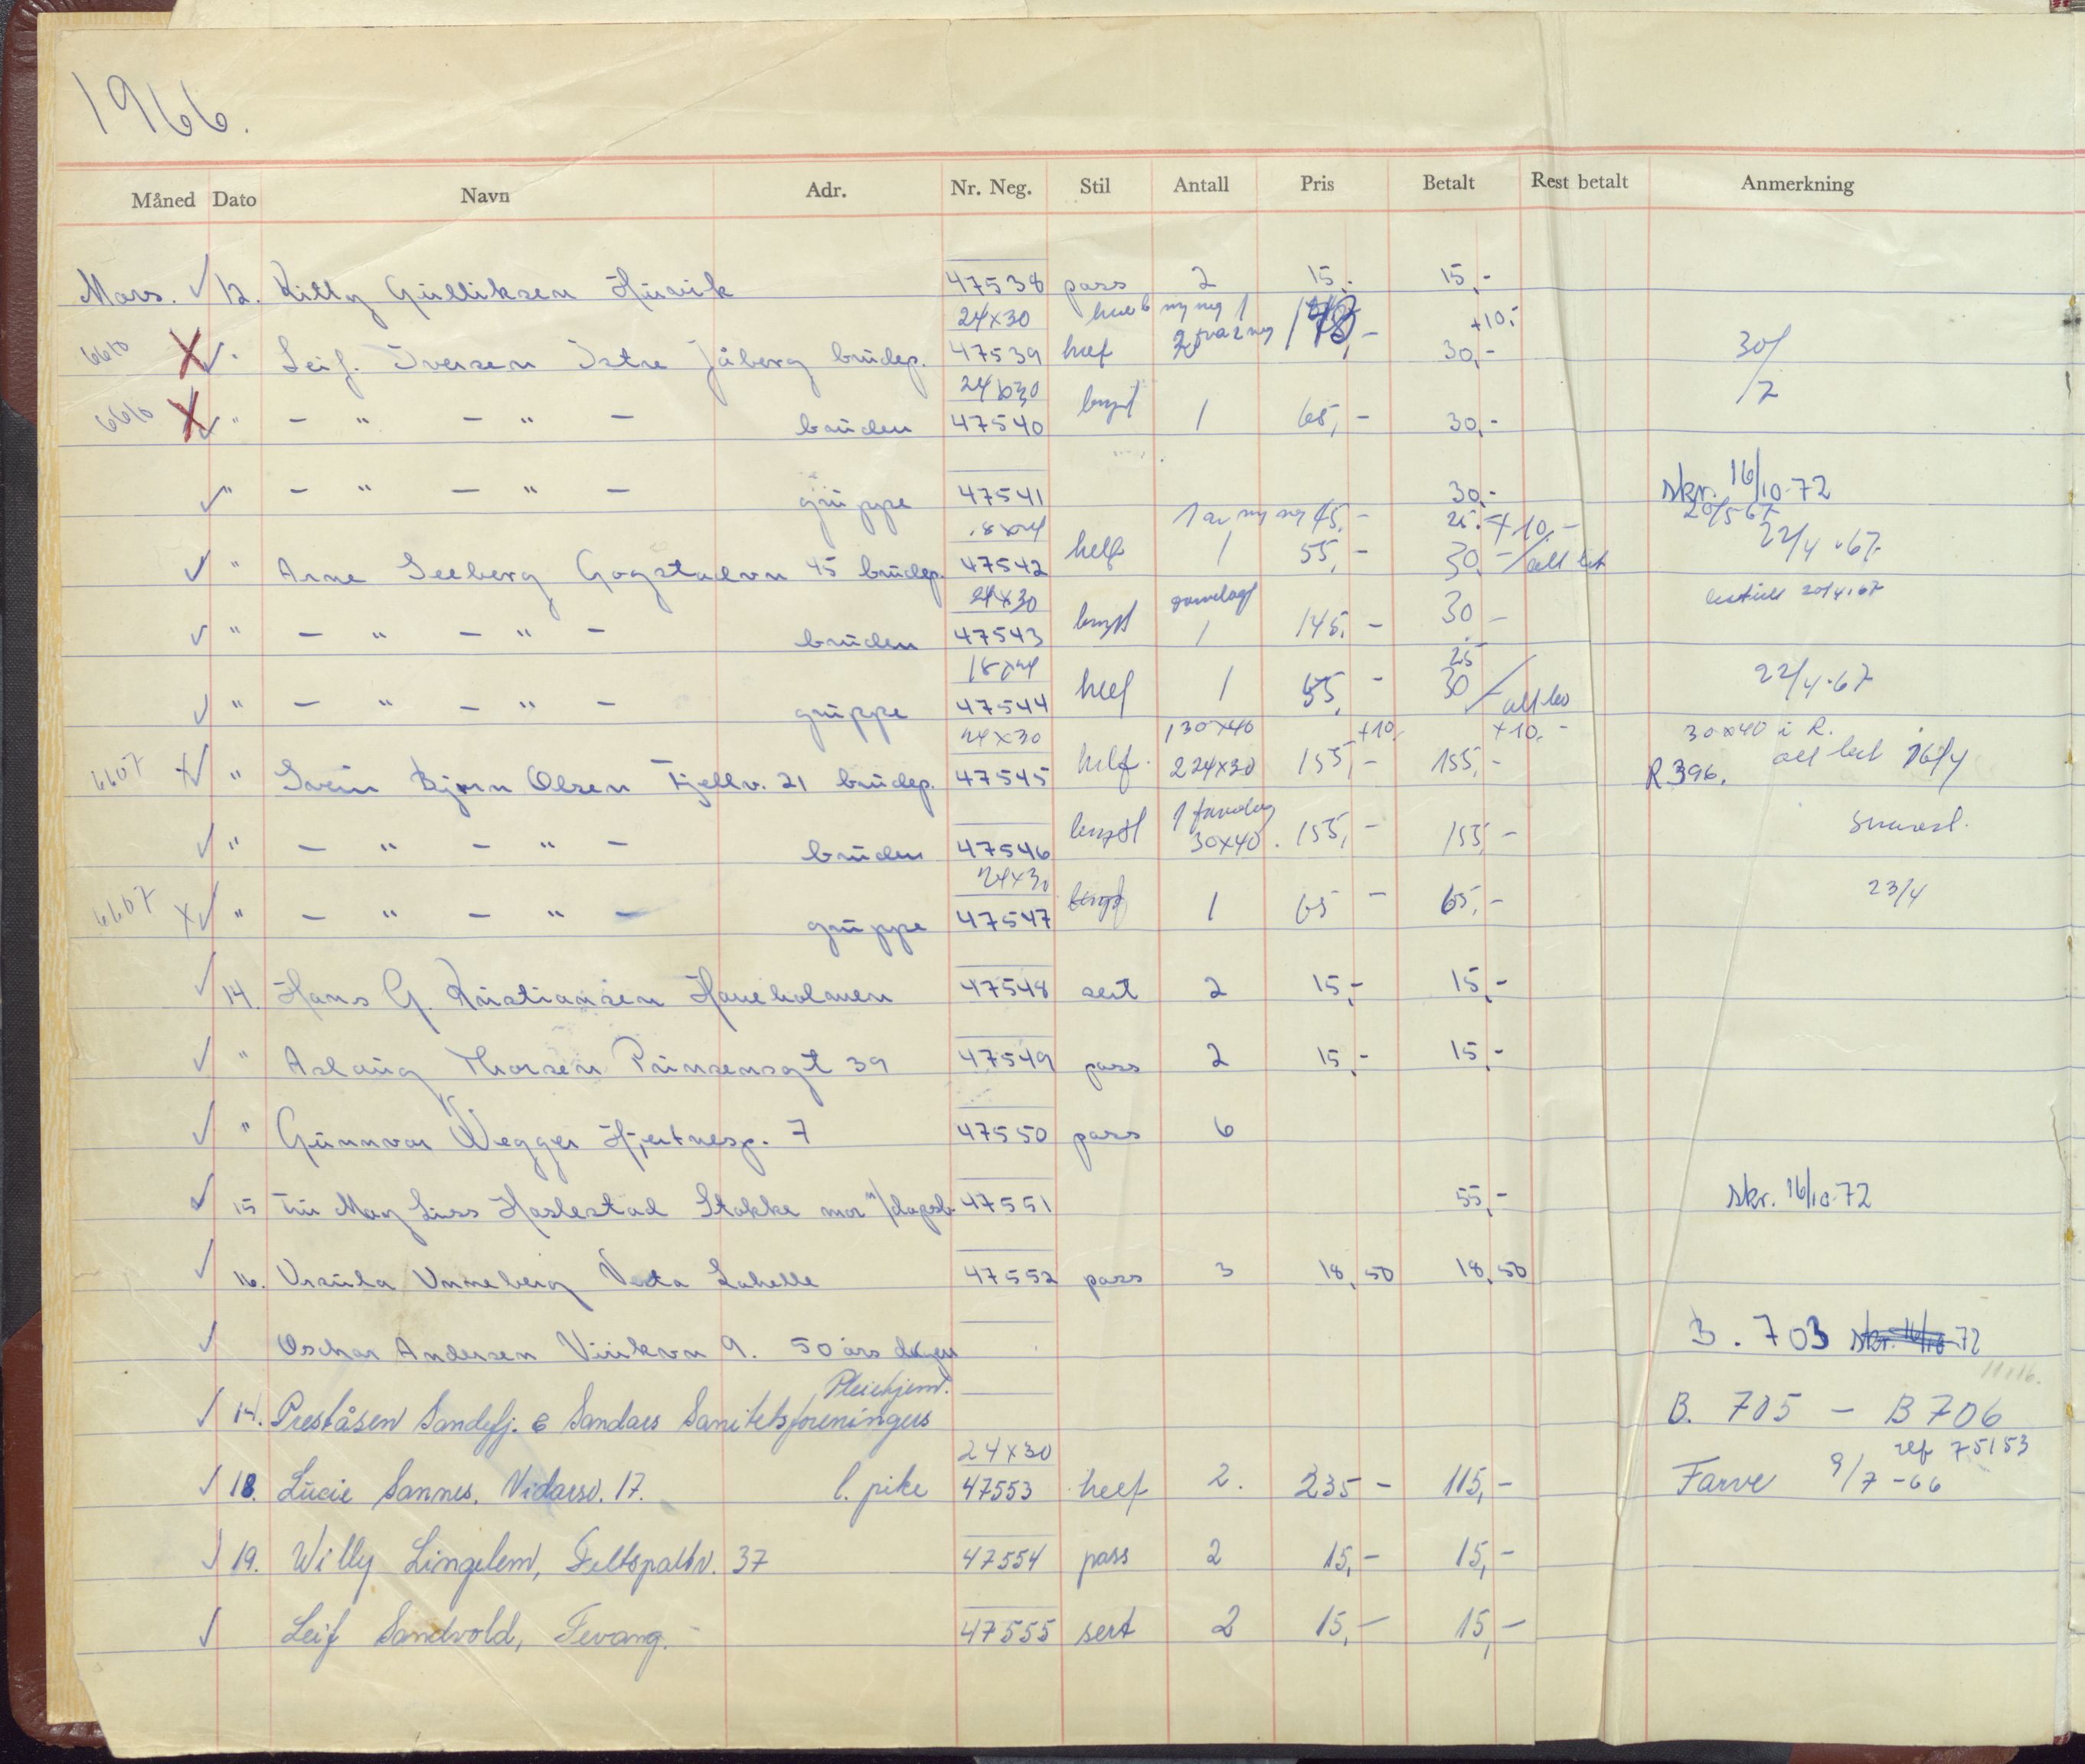 1966.
Måned Dato Navn Adr. Nr. Neg. Stil Antall Pris Betalt Rest betalt Anmerkning
Mars. ✓ 12. Killy Gulliksen Huvik 47538 pass 2 15,- 15,-
24x30 ny neg 1 +10,-
6610 X ✓ " Leif. Iversen Istre Jåberg brudep. 47539 helf 30,- 30/7
24x30
6610 X ✓ " - " - " - bruden 47540 bryst 1 65,- 30,-
✓ " - " - " - gruppe 47541 30,- skr. 16/10-72
18x24 1 av ny neg 45,- 25,- + 10,- 20/5 67
✓ " Arne Seeberg Gogstadvn 45 brudep. 47542 helf 1 55,- 30,- / alt bet 22/4-67
24x30 20/4.67
✓ " - " - " - bruden 47543 bryst 1 145,- 30,-
18x24 25
✓ " - " - " - gruppe 47544 helf 1 55,- 30 / 22/4-67
24x30 1 30x40 +10,- +10,- 30x40 i R.
6607 X ✓ " Svein Bjørn Olsen Fjellv. 21 brudep. 47545 helf. 2 24x30 155,- 155,- R 396. alt bet 16/4
✓ " - " - " - bruden 47546 bryst 1 30x40. 155,- 155,-
24x30
6607 X ✓ " - " - " - gruppe 47547 bryst 1 65 - 65,- 23/4
✓ 14. Hans G. Kristiansen Haveholmen 47548 sert 2 15,- 15,-
✓ " Aslaug Thorsen Prinsensgt 39 47549 pass 2 15,- 15,-
✓ " Gunnvor Wegger Hjertnesp. 7 47550 pass 6
✓ 15 May Liss Haslestad Stokke mor 47551 55,- skr. 16/10-72
✓ 16. Ursula Unneberg Vesta Lahelle 47552 pass 3 18,50 18,50
✓ Oschar Andersen Virikvn 9. 50 års dagen B. 703 skr. 16/10-72
Pleiehjem.
✓ 14. Preståsen Sandefj. & Sandars Sanitetsforeningers B. 705 - B 706
24x30 75153
✓ 18. Lucie Sannes. Vidarsv. 17. l. pike 47553 helf 2. 235 - 115,- Farve 9/7-66
✓ 19. Willy Lingelem, Feltspaltv. 37 47554 pass 2 15,- 15,-
✓ Leif Sandvold, Fevang. 47555 sert 2 15,- 15,-